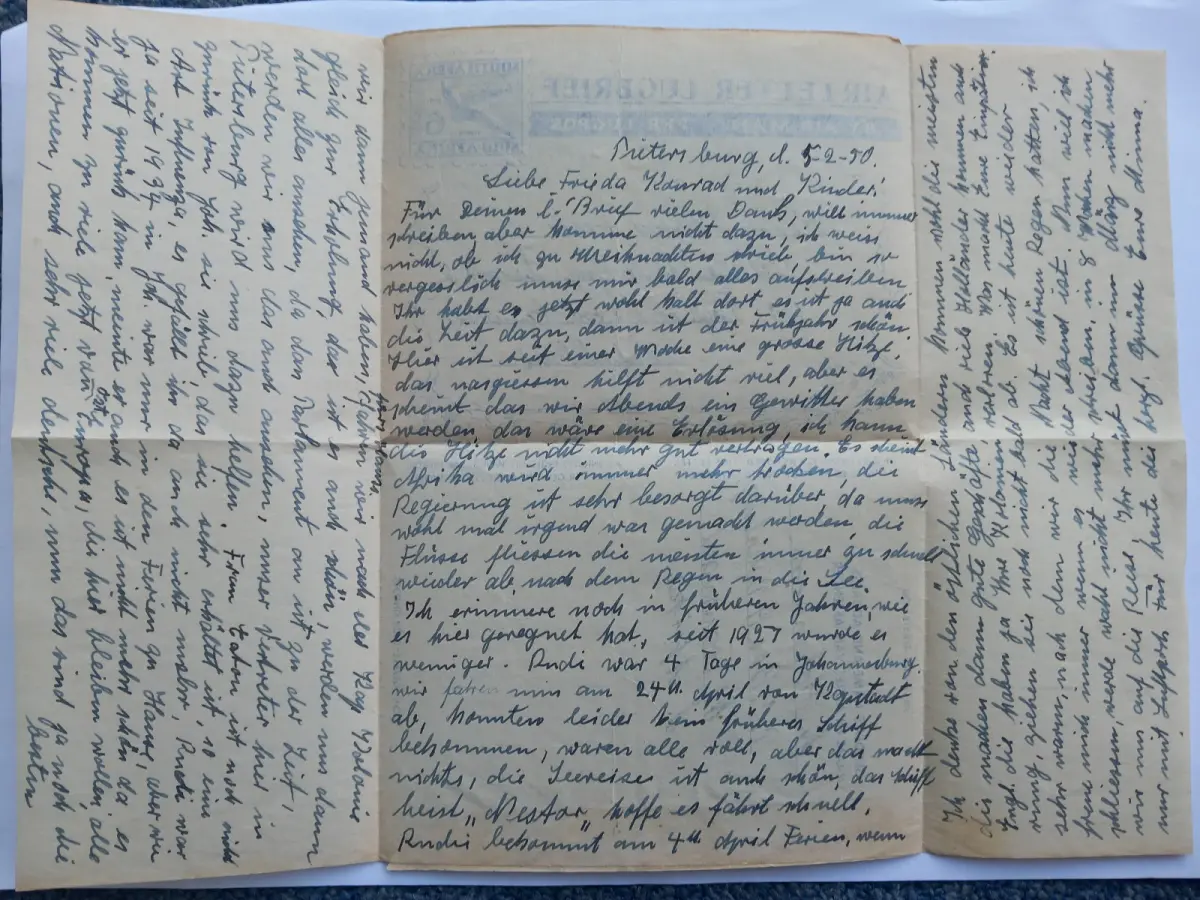 Pietersburg, d. 5-2-50.
Liebe Frieda Konrad und Kinder!
Für Deinen l. Brief vielen Dank, will immer
schreiben, aber komme nicht dazu, ich weiss
nicht, ob ich zu Weihnachten schrieb bin so
vergesslich muss mir bald alles aufschreiben
Ihr habt es jetzt wohl kalt dort es ist ja auch
die Zeit dazu, dann ist der Frühjahr schön.
Hier ist seit einer Woche eine grosse Hitze,
das nasgiessen hilft nicht viel, aber es
scheint das wir Abends ein Gewitter haben
werden das wäre eine Erlösung, ich kann
die Hitze nicht mehr gut vertragen. Es scheint
Afrika wird immer mehr trocken, die
Regierung ist sehr besorgt darüber, da muss
wohl mal irgend was gemacht werden, die
Flüsse fliessen die meisten immer zu schnell
wieder ab nach dem Regen in die See.
Ich erinnere noch in früheren Jahren, wie
es hier geregnet hat, seit 1927 wurde es
weniger. Rudi war 4 Tage in Johannesburg.
wir fahren nun am 24th April von Kapstadt
ab, konnten leider kein früheres Schiff
bekommen, waren alle voll, aber das macht
nichts, die Seereise ist auch schön, das Schiff
heist "Nestor" hoffe es fährt schnell.
Rudi bekommt am 4th April Ferien, wenn
wir dann jemand haben, fahren wir nach der Kap Kolonie
gleich zur Erholung, das ist es auch schön, werden uns dann
dort alles ansehen, da das Parlament an ist zu der Zeit,
werden wir uns das auch ansehen, unser Vertreter hier in
Pietersburg wird uns dazu helfen. Frau Eaton ist noch nicht
zurück von Joh. sie schrieb das sie sehr erkältet ist, so eine
Art Influenza, es gefällt ihr da auch nicht mehr, Rudi war
ja seit 1937 in Joh. war nur in den Ferien zu Haus, aber wie
er jetzt zurück kam, meinte er auch es ist nicht mehr schön da es
kommen zu viele jetzt von Ost Europa, die hier bleiben wollen, alle
Nationen, auch sehr viele deutsche, nun das sind ja noch die
besten
Ich denke von den östlichen Ländern kommen wohl die meisten
die machen dann gute Geschäfte, auch viele Holländer kommen aus
Engl. die haben ja Ihre Kolonien verloren. Was macht Eure Einquartier-
ung, ziehen sie noch nicht bald ab. Es ist heute wieder
sehr warm, nach dem wir die Nacht schönen Regen hatten, ich
freue mich immer wenn es wieder Abend ist. Nun will ich
schliessen, werde wohl nicht mehr schreiben, in 8 Wochen machen
wir uns auf die Reise. Ihr müst dann im März nicht mehr
nur mit Luftpost für heute die herzl. Grüsse Eure Minna.